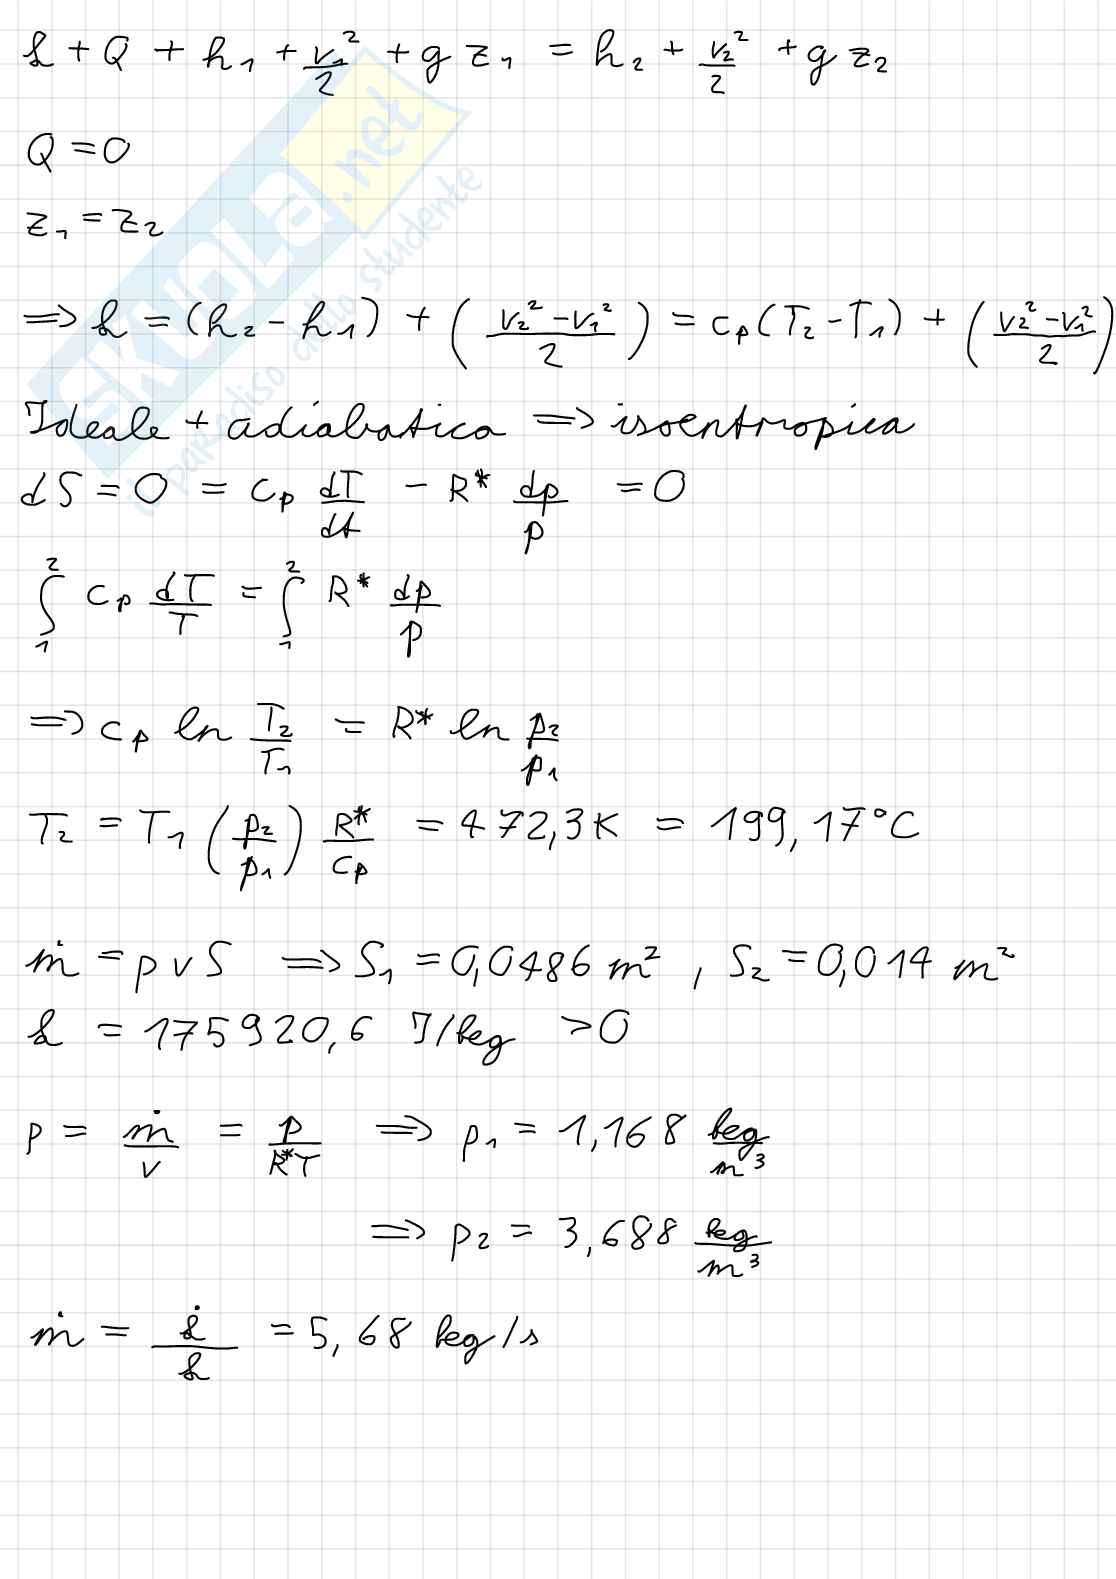 ℓ + Q + h₁ + v₁²/2 + g z₁ = h₂ + v₂²/2 + g z₂
Q = 0
z₁ = z₂
⇒ ℓ = (h₂ - h₁) + ((v₂² - v₁²)/2) = cₚ(T₂ - T₁) + ((v₂² - v₁²)/2)
Ideale + adiabatica ⇒ isoentropica
dS = 0 = cₚ dT/dt - R* dp/p = 0
∫₁² cₚ dT/T = ∫₁² R* dp/p
⇒ cₚ ln T₂/T₁ = R* ln p₂/p₁
T₂ = T₁ (p₂/p₁) R*/cₚ = 472,3 K = 199,17°C
ṁ = ρ v S ⇒ S₁ = 0,0486 m², S₂ = 0,014 m²
ℓ = 175920,6 J/kg > 0
ρ = ṁ/v = p/R*T ⇒ ρ₁ = 1,168 kg/m³
⇒ ρ₂ = 3,688 kg/m³
ṁ = ℓ̇/ℓ = 5,68 kg/s
SKUOLA.net
il paradiso dello studente